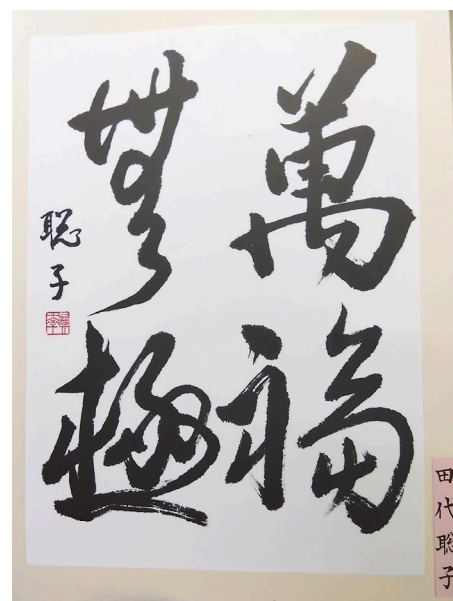 萬福
無極
聡子
田代聡子